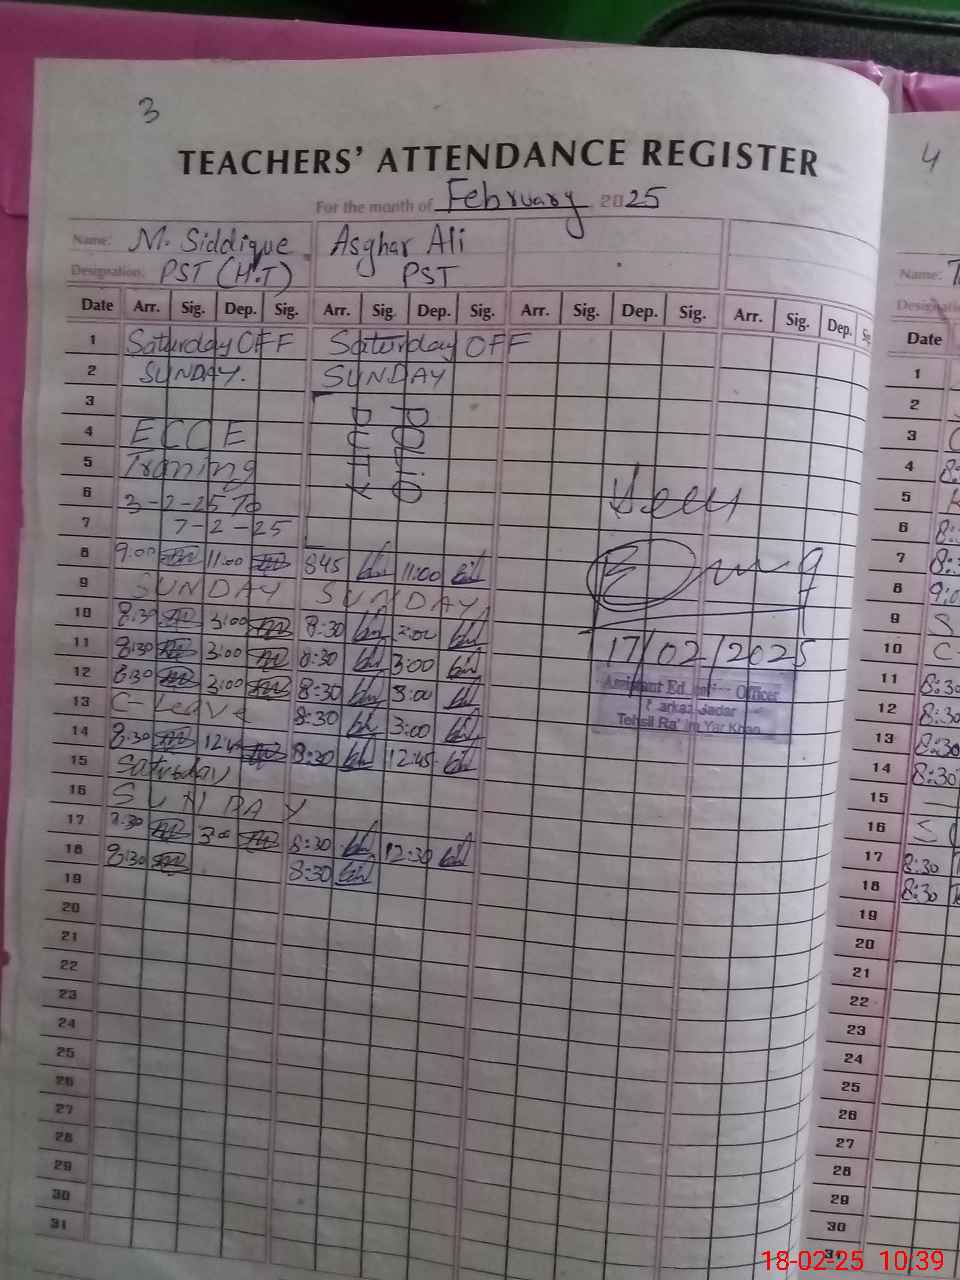 3
TEACHERS' ATTENDANCE REGISTER
For the month of February 2025
Name: M. Siddique Asghar Ali
Designation: PST (H.T) PST
Date Arr. Sig. Dep. Sig. Arr. Sig. Dep. Sig. Arr. Sig. Dep. Sig. Arr. Sig. Dep.
1 Saturday OFF Saturday OFF
2 SUNDAY. SUNDAY
3
4 ECCE
5 Traning
6 3-2-25 To
7 7-2-25
POLiO
8 9:00 11:00 845 11:00
9 SUNDAY SUNDAY
10 8:30 3:00 8:30 3:00
11 8:30 3:00 8:30 3:00
12 8:30 3:00 8:30 3:00
13 C-Leave 8:30 3:00
14 8:30 12:45 8:30 12:45
15 Saturday
16 SUNDAY
17 8:30 3:00 8:30 12:30
18 8:30 8:30
19
20
21
22
23
24
25
26
27
28
29
30
31
Seen
17/02/2025
Assistant Officer
Markaz Sadar
Tehsil Rahim Yar Khan
4
Name:
Date
1
2
3
4 8:
5
6 8:
7 8:
8 9:0
9 S
10 C-
11 8:30
12 8:30
13 8:30
14 8:30
15
16 S
17 8:30
18 8:30
19
20
21
22
23
24
25
26
27
28
29
30
31
18-02-25 10:39